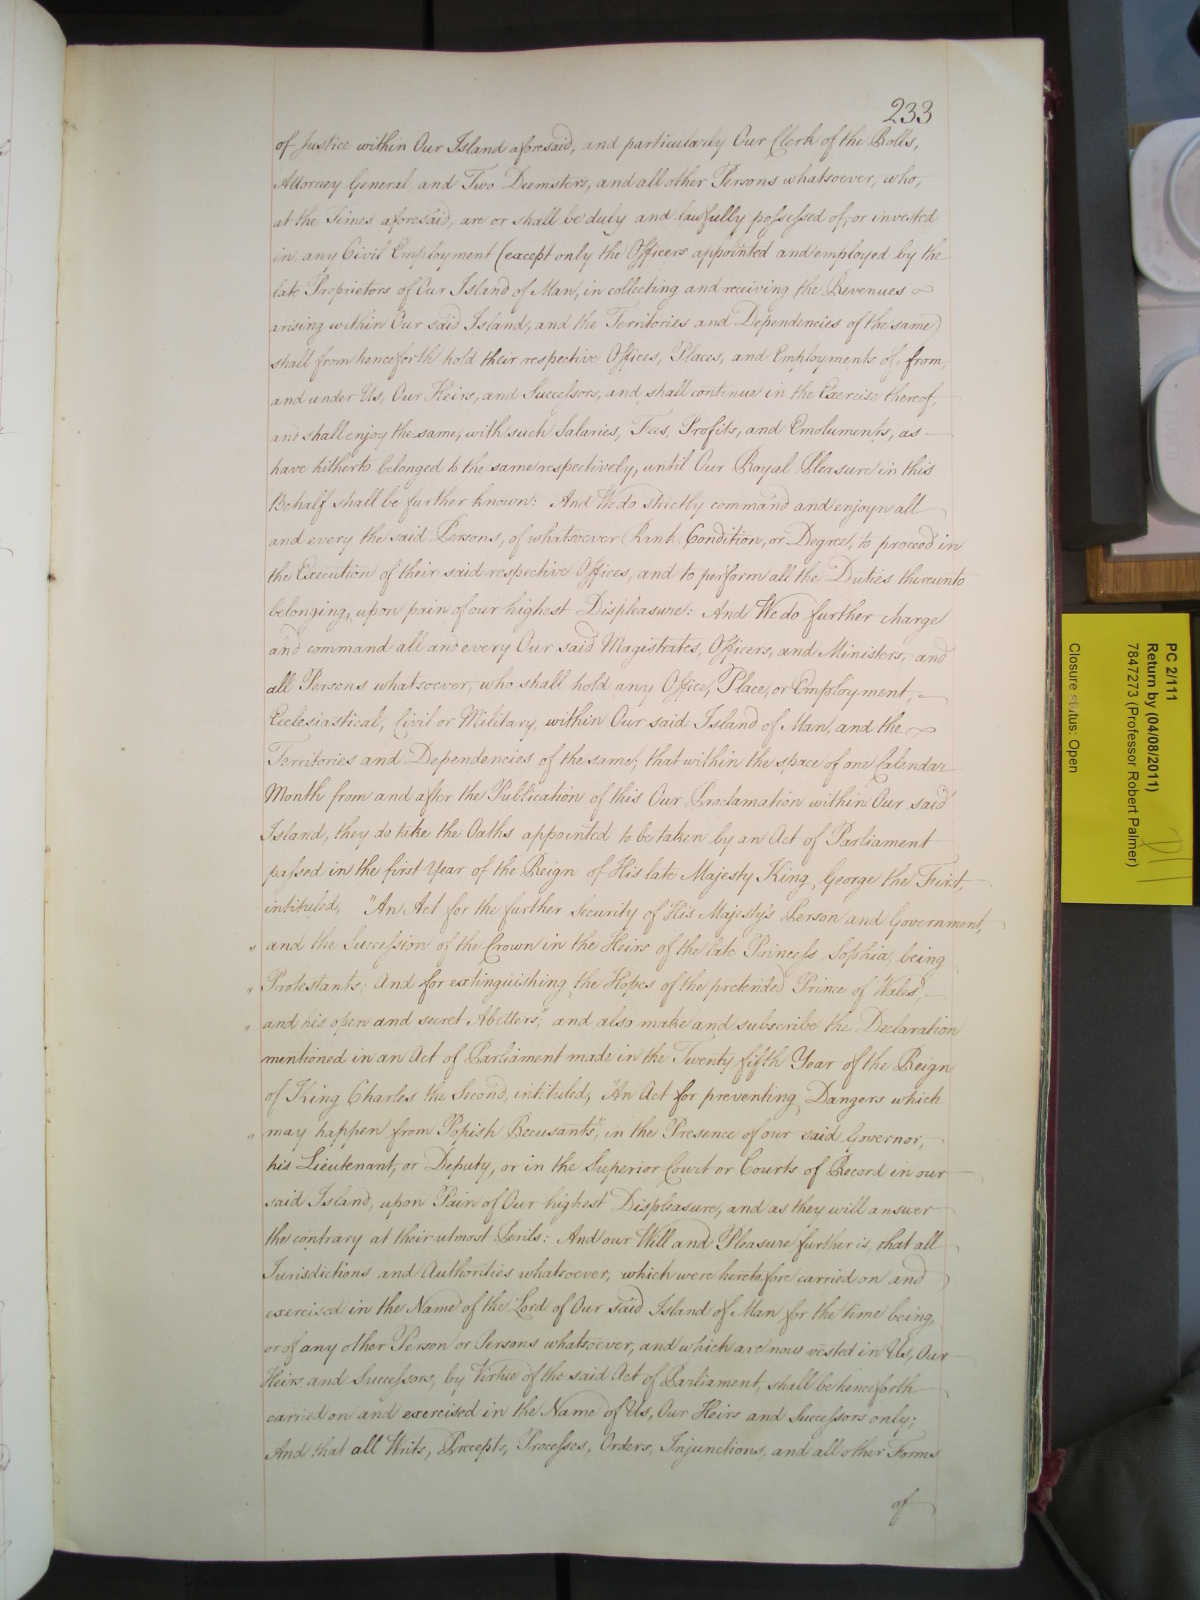 233
of Justice within Our Island aforesaid, and particularly Our Clerk of the Rolls,
Attorney General and Two Deemsters, and all other Persons whatsoever, who,
at the Times aforesaid, are or shall be duly and lawfully possessed of, or invested
in any Civil Employment (except only the Officers appointed and employed by the
late Proprietors of Our Island of Man, in collecting and receiving the Revenues
arising within Our said Island, and the Territories and Dependencies of the same)
shall from henceforth hold their respective Offices, Places, and Employments of, from,
and under Us, Our Heirs, and Successors, and shall continue in the Exercise thereof,
and shall enjoy the same, with such Salaries, Fees, Profits, and Emoluments, as
have hitherto belonged to the same respectively, until Our Royal Pleasure in this
Behalf shall be further known: And We do strictly command and enjoyn all
and every the said Persons, of whatsoever Rank, Condition, or Degree, to proceed in
the Execution of their said respective Offices, and to perform all the Duties thereunto
belonging, upon pain of our highest Displeasure: And We do further charge
and command all and every Our said Magistrates, Officers, and Ministers, and
all Persons whatsoever, who shall hold any Office, Place, or Employment,
Ecclesiastical, Civil or Military, within Our said Island of Man, and the
Territories and Dependencies of the same; that within the space of one Calendar
Month from and after the Publication of this Our Proclamation within Our said
Island, they do take the Oaths appointed to be taken by an Act of Parliament
passed in the first Year of the Reign of His late Majesty King George the First,
intituled, "An Act for the further Security of His Majesty's Person and Government,
" and the Succession of the Crown in the Heirs of the late Princess Sophia, being
" Protestants; And for extinguishing the Hopes of the pretended Prince of Wales,
" and his open and secret Abettors;" and also make and subscribe the Declaration
mentioned in an Act of Parliament made in the Twenty fifth Year of the Reign
of King Charles the Second, intituled, "An Act for preventing Dangers which
" may happen from Popish Recusants", in the Presence of our said Governor,
his Lieutenant, or Deputy, or in the Superior Court or Courts of Record in our
said Island, upon Pain of Our highest Displeasure, and as they will answer
the contrary at their utmost Perils: And our Will and Pleasure further is, that all
Jurisdictions and Authorities whatsoever, which were heretofore carried on and
exercised in the Name of the Lord of Our said Island of Man for the time being,
or of any other Person or Persons whatsoever, and which are now vested in Us, Our
Heirs and Successors, by Virtue of the said Act of Parliament, shall be henceforth
carried on and exercised in the Name of Us, Our Heirs and Successors only;
And that all Writs, Precepts, Processes, Orders, Injunctions, and all other Forms
of
PC 2/111
Return by (04/08/2011)
7847273 (Professor Robert Palmer)
Closure status: Open